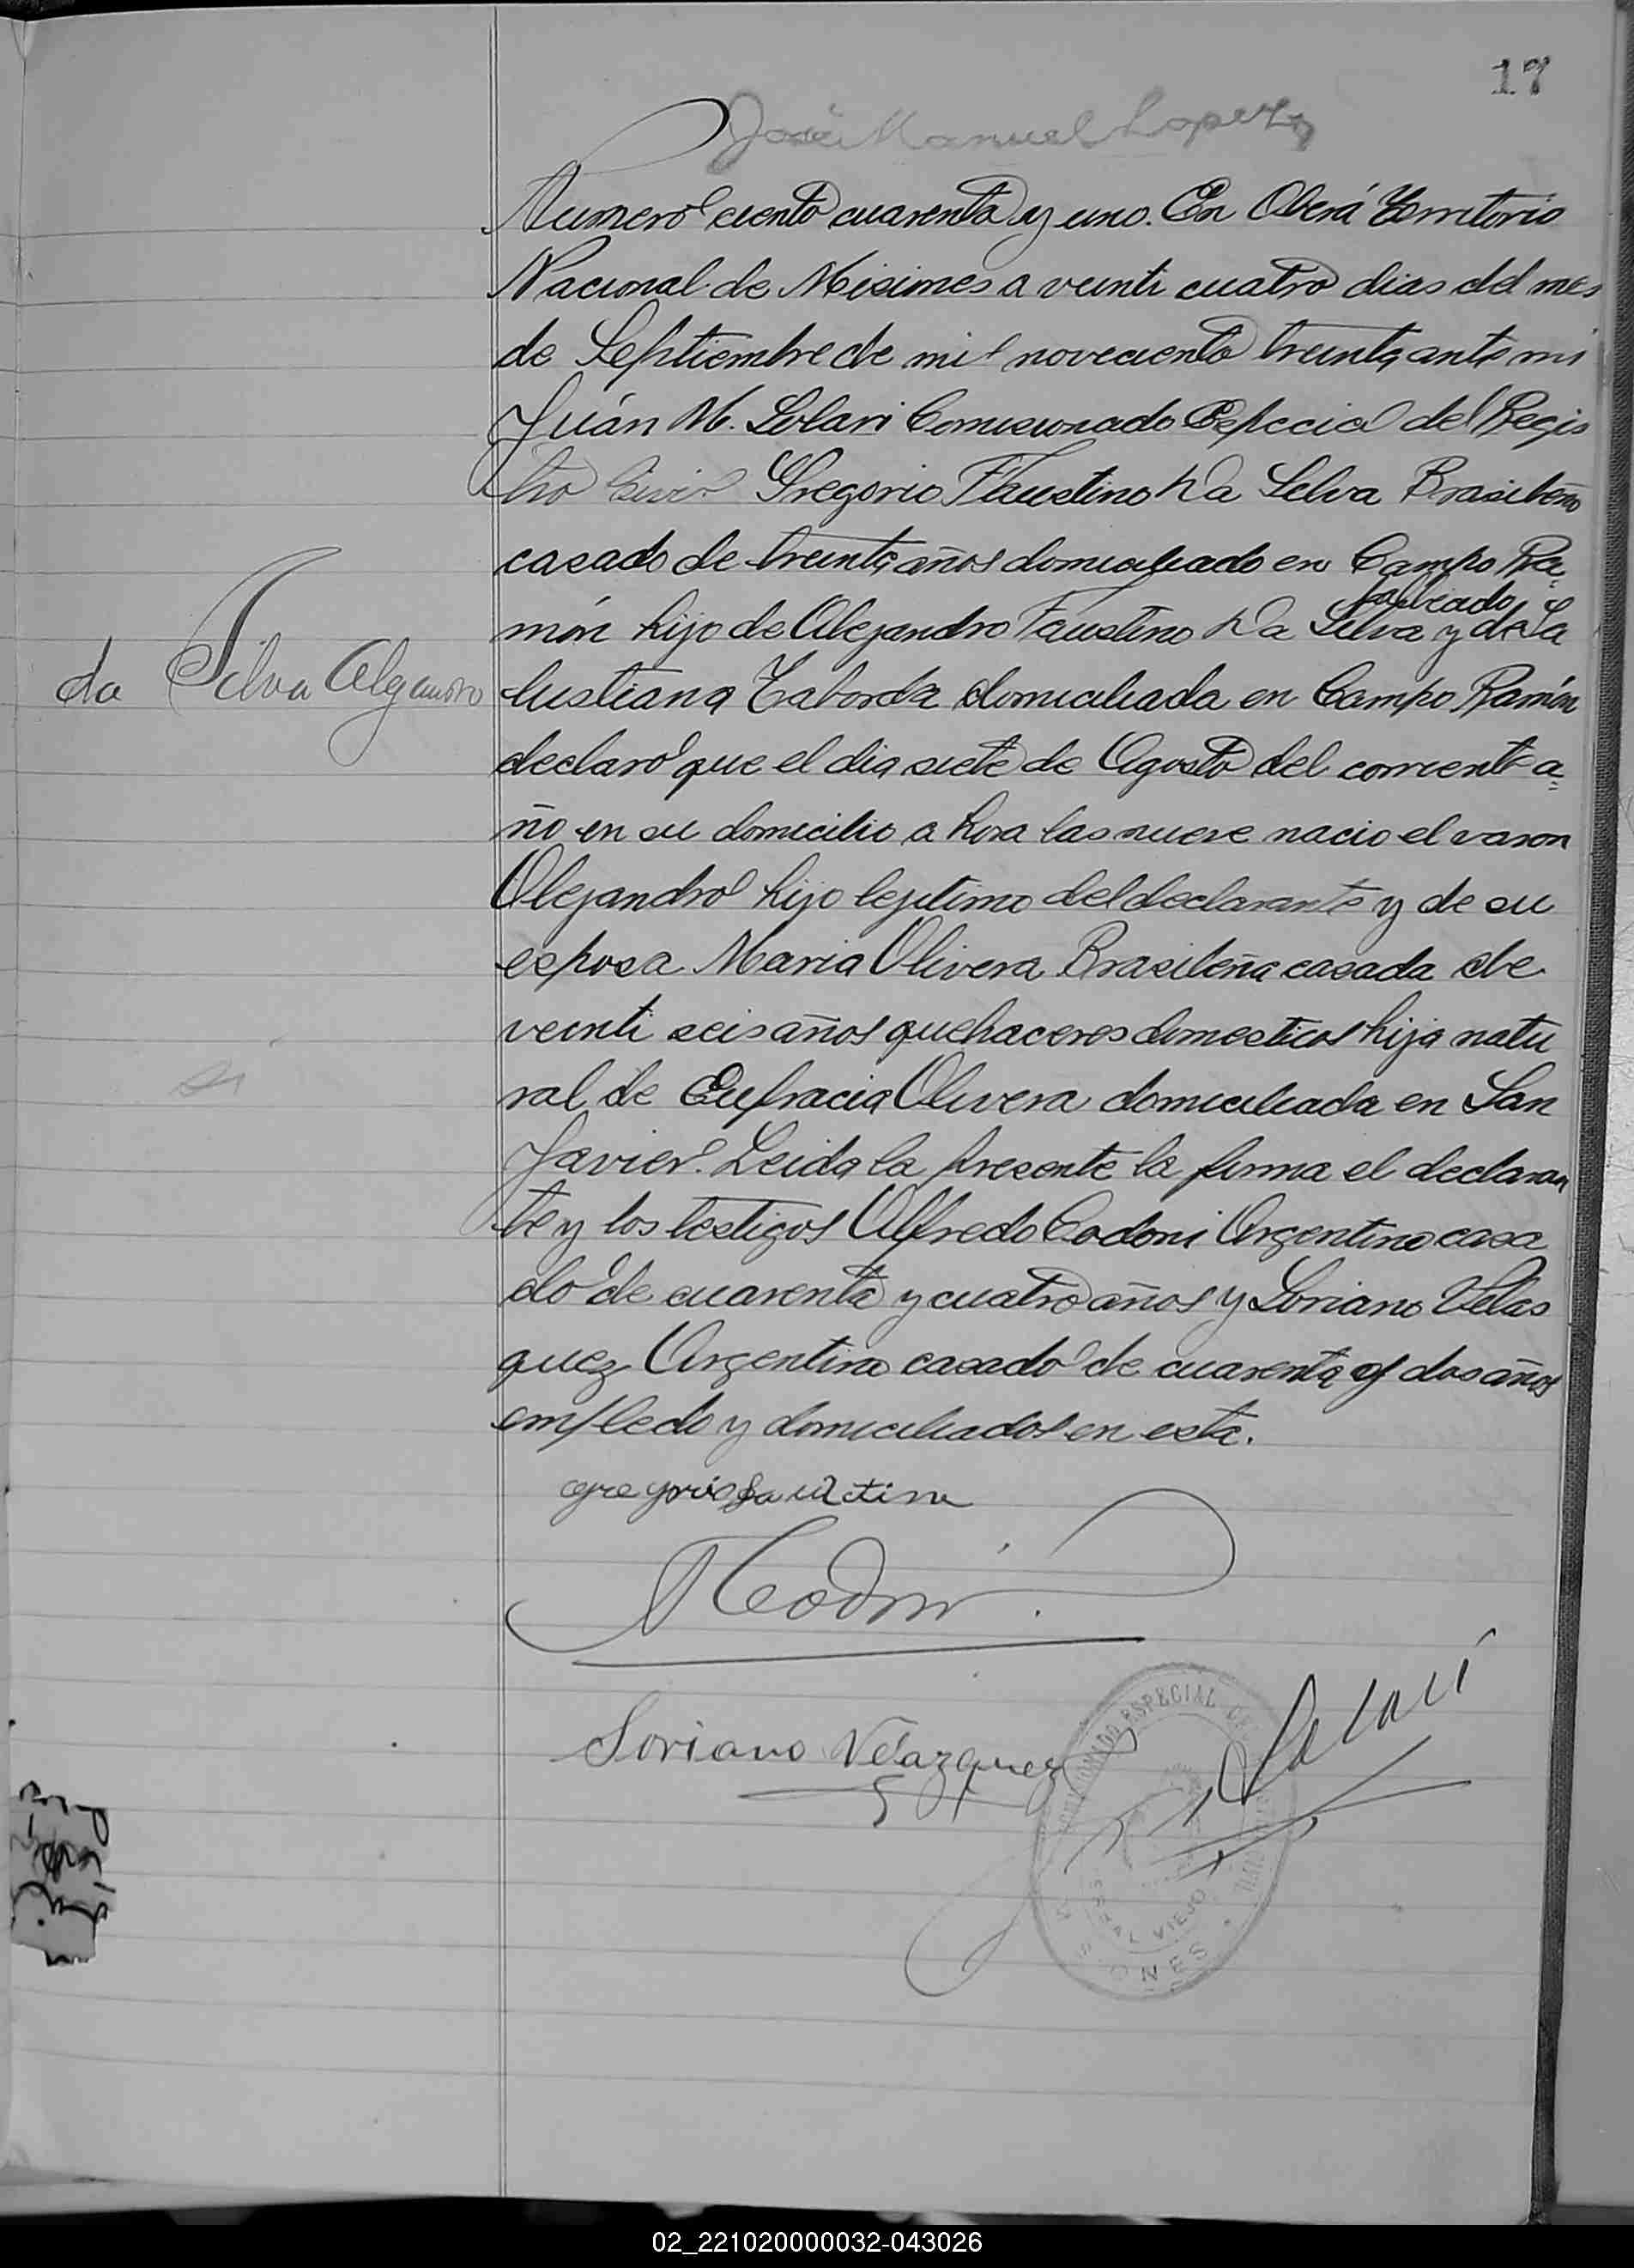 17
José Manuel Lopez
Numero ciento cuarenta y uno. En Oberá Territorio
Nacional de Misiones a veinti cuatro dias del mes
de Septiembre de mil noveciento treinta ante mi
Juán M. Solari Comisionado Especial del Regis
tro Civil Gregorio Faustino Da Selva Brasileño
casado de treinta años domiciliado en Campo Ra-
món hijo de Alejandro Faustino Da Selva y de Sa
lustiana Taborda domiciliada en Campo Ramón
da Silva Alejandro
declaró que el dia siete de Agosto del corriente a=
ño en su domicilio a hora las nueve nacio el varon
Alejandro hijo lejitimo del declarante y de su
esposa Maria Olivera Brasileña casada de
veinti seis años quehaceres domesticos hija natu
ral de Eufracia Olivera domiciliada en San
Javier. Leida la presente la firma el declaran
te y los testigos Alfredo Codoni Argentino casa
do de cuarenta y cuatro años y Soriano Velas
quez Argentino casado de cuarenta y dos años
empledo y domiciliados en esta.
gregorio faustino
Codoni
Soriano Velazquez
Solari
COMISIONADO ESPECIAL
VIEJO
02_221020000032-043026